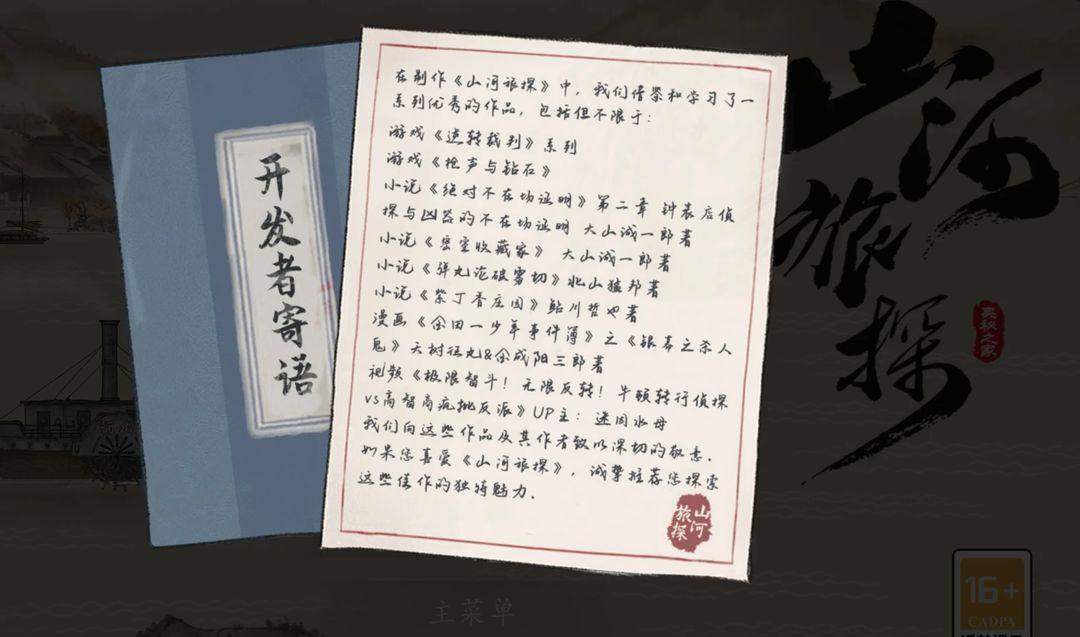 开发者寄语
在制作《山河旅探》中，我们借鉴和学习了一
系列优秀的作品，包括但不限于：
游戏《逆转裁判》系列
游戏《枪声与钻石》
小说《绝对不在场证明》第二章 钟表店侦
探与凶器的不在场证明 大山诚一郎著
小说《密室收藏家》 大山诚一郎著
小说《弹丸论破雾切》北山猛邦著
小说《紫丁香庄园》鲇川哲也著
漫画《金田一少年事件簿》之《银幕之杀人
鬼》天树征丸&金成阳三郎著
视频《极限智斗！无限反转！牛顿转行侦探
vs高智商疯批反派》UP主：迷因水母
我们向这些作品及其作者致以深切的敬意．
如果您喜爱《山河旅探》，诚挚推荐您探索
这些佳作的独特魅力．
山河
旅探
山河
旅探
奥秘之家
16+
CADPA
主菜单